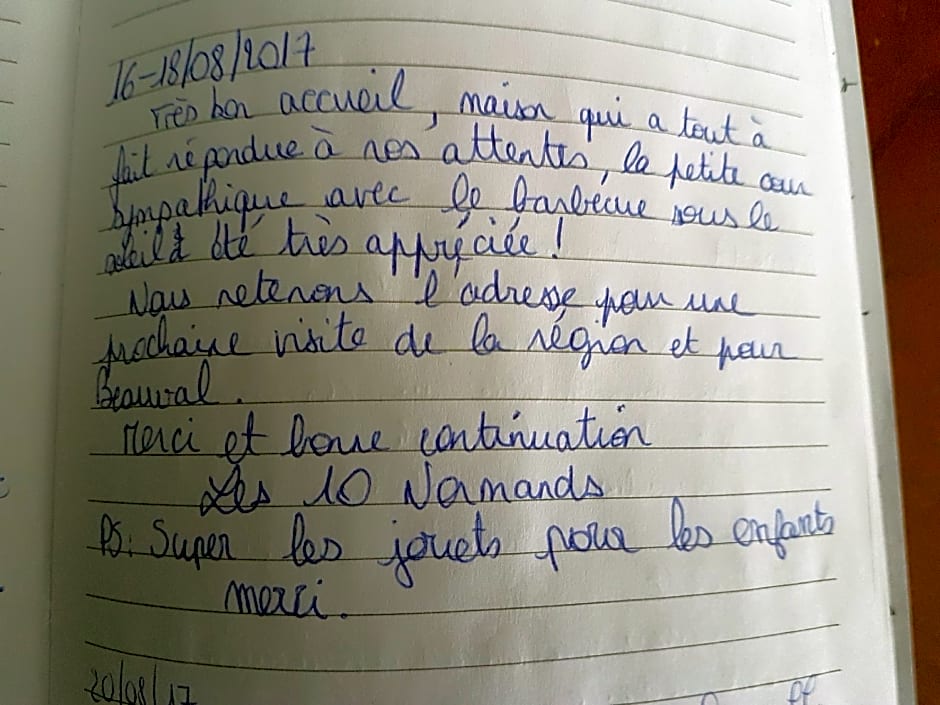 16-18/08/2017
Très bon accueil, maison qui a tout à
fait répondue à nos attentes, la petite cour
sympathique avec le barbécue sous le
soleil à été très appréciée !
Nous retenons l'adresse pour une
prochaine visite de la région et pour
Beauval.
Merci et bonne continuation
Les 10 Normands
PS: Super les jouets pour les enfants
merci.
20/08/17